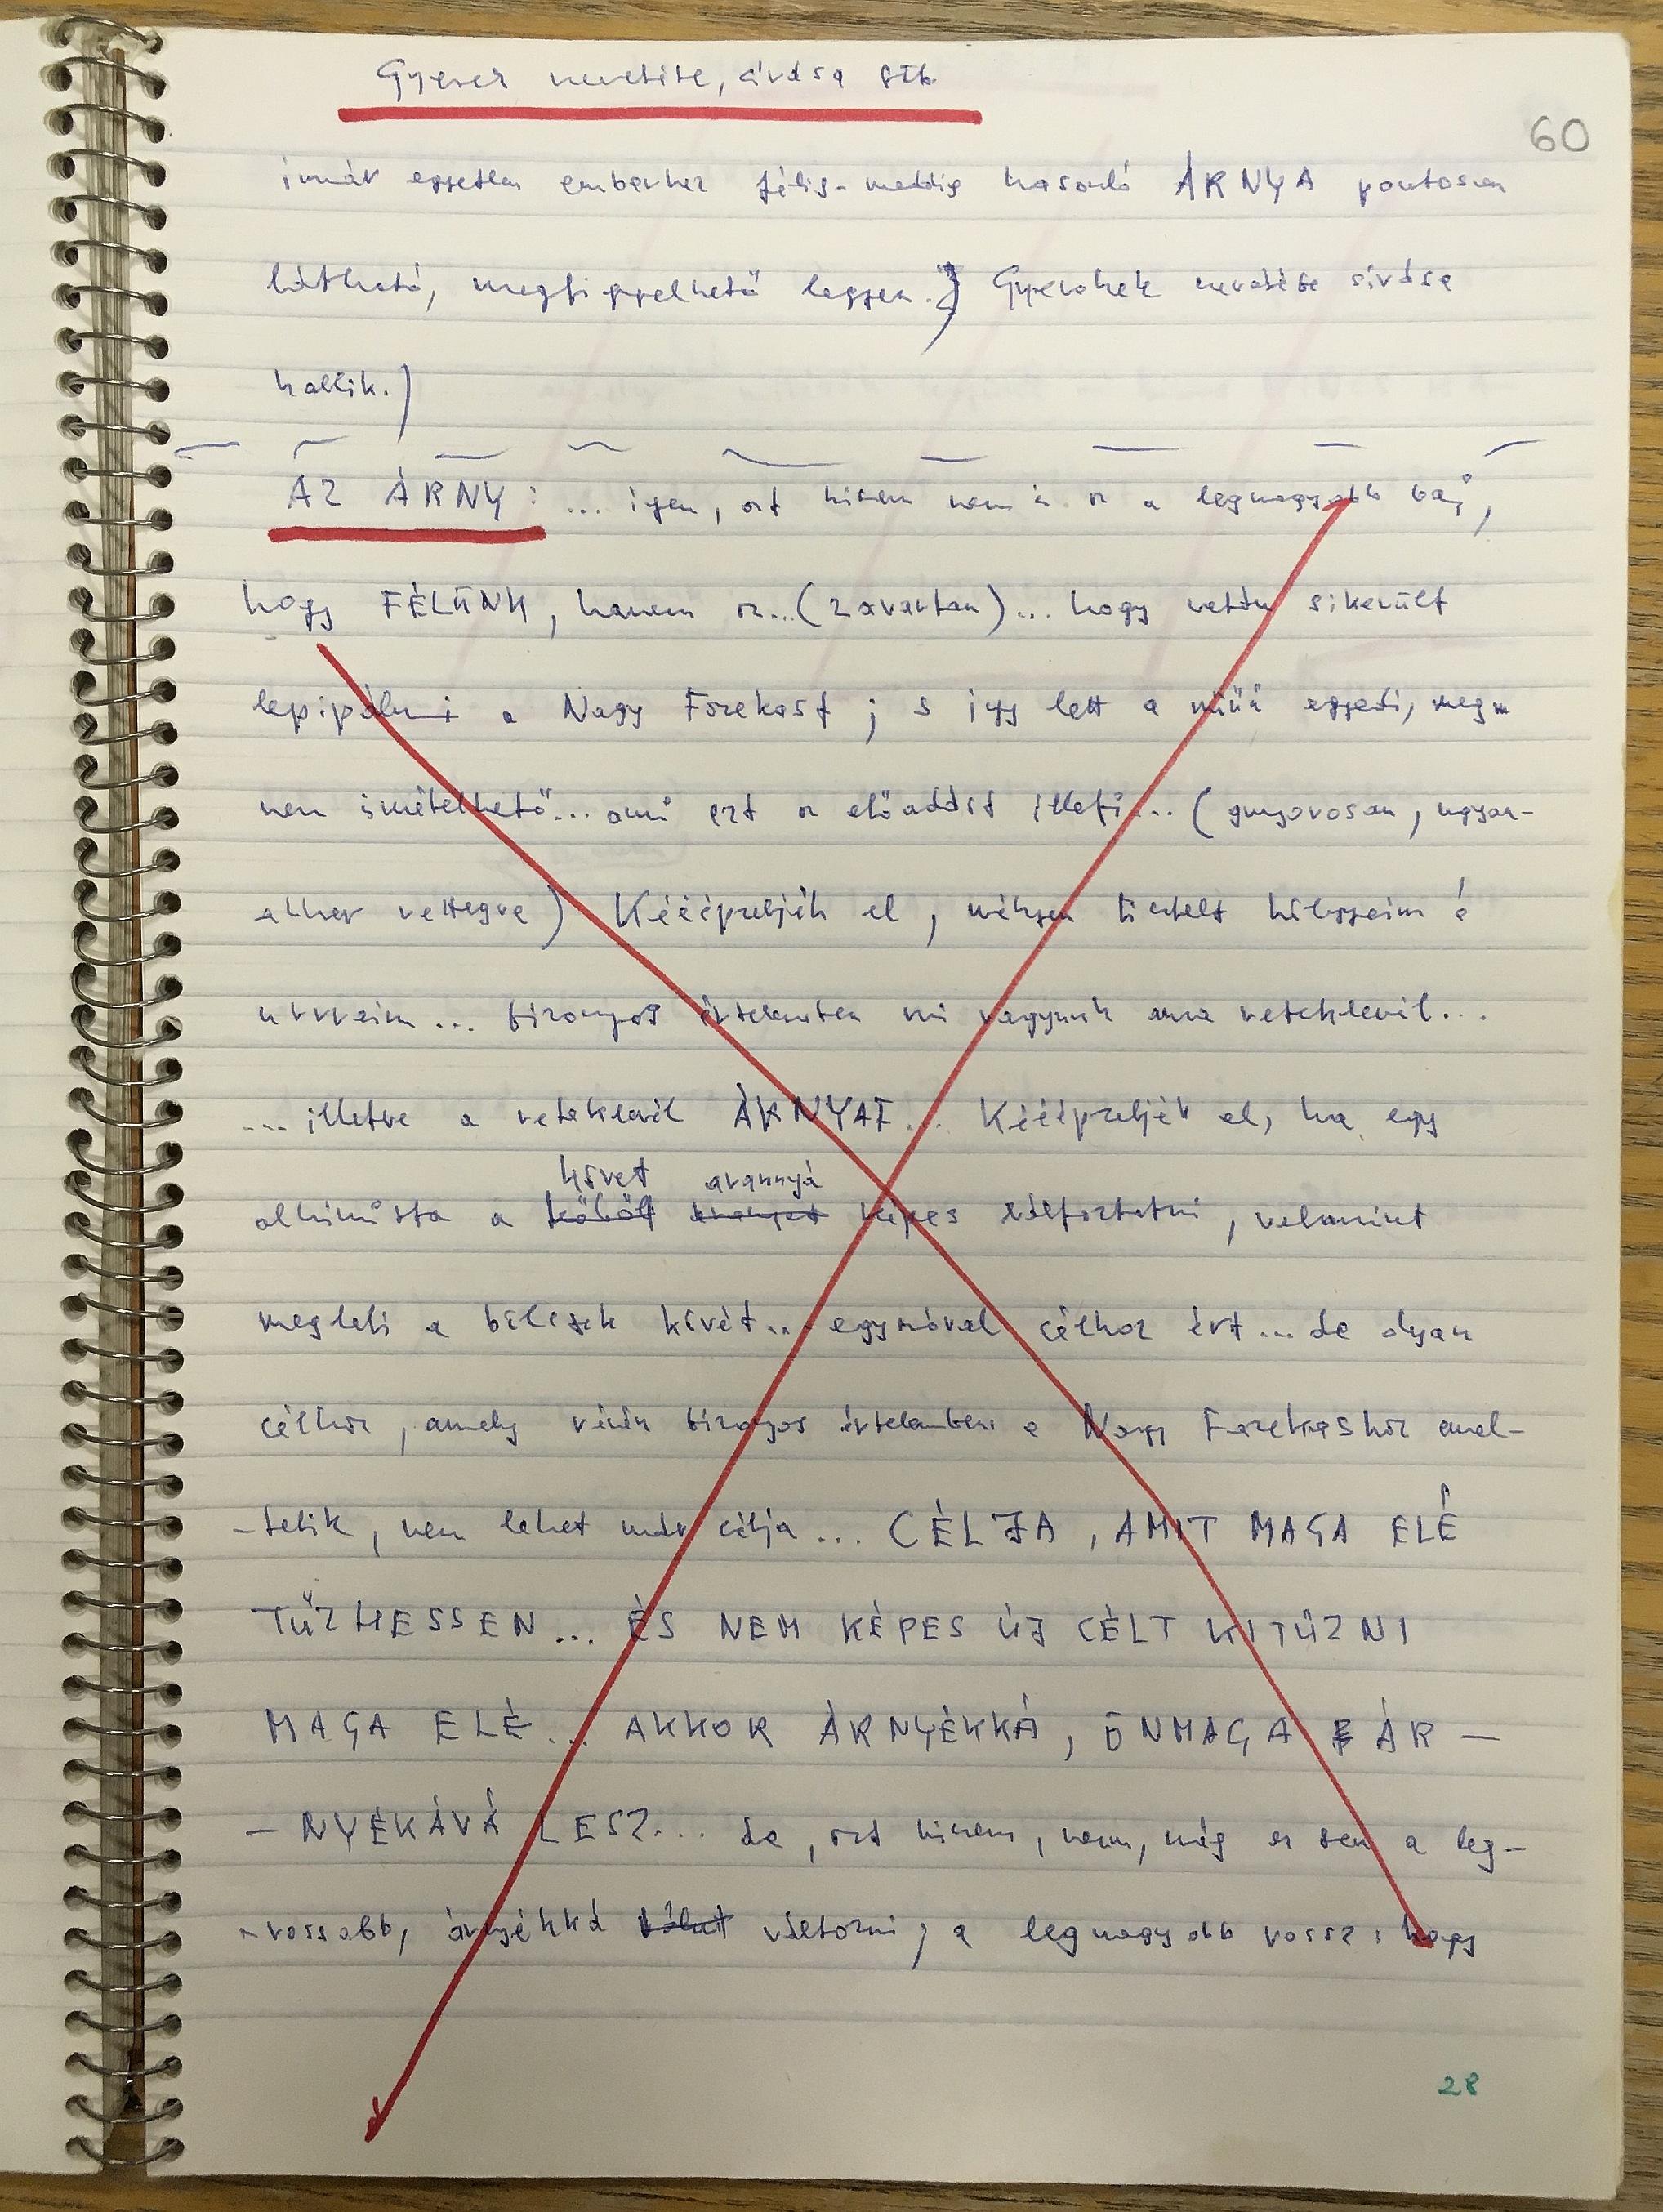 Gyerek nevetése, sírása stb.
60
immár egyetlen emberhez félig-meddig hasonló ÁRNYA pontosan
látható, megtippelhető legyen.) Gyerekek nevetése sírása
hallik.)
AZ ÁRNY: ... igen, azt hiszem nem is az a legnagyobb baj,
hogy FÉLÜNK, hanem az...(zavartan)... hogy netán sikerült
lepipálni a Nagy Fazekast; s így lett a műű egyedi, meg
nem ismételhető... ami ezt az előadást illeti... (gunyorosan, ugyan-
akkor rettegve) Kééépzeljék el, mélyen tisztelt hölgyeim é
uraim... bizonyos értelemben mi vagyunk ama vetéklevél...
... illetve a vetéklevél ÁRNYAI... Kééépzeljék el, ha egy
követ arannyá
alkimista a kőből aranyat képes változtatni, valamint
megleli a bölcsek kövét... egyszóval célhoz ért... de olyan
célhoz, amely révén bizonyos értelemben a Nagy Fazekashoz emel-
-tetik, nem lehet már célja... CÉLJA, AMIT MAGA ELÉ
TŰZHESSEN... ÉS NEM KÉPES ÚJ CÉLT KITŰZNI
MAGA ELÉ... AKKOR ÁRNYÉKKÁ, ÖNMAGA ÁR-
- NYÉKÁVÁ LESZ... de, azt hiszem, nem, még ez sem a leg-
-rosszabb, árnyékká változni; a legnagyobb rossz: hogy
28